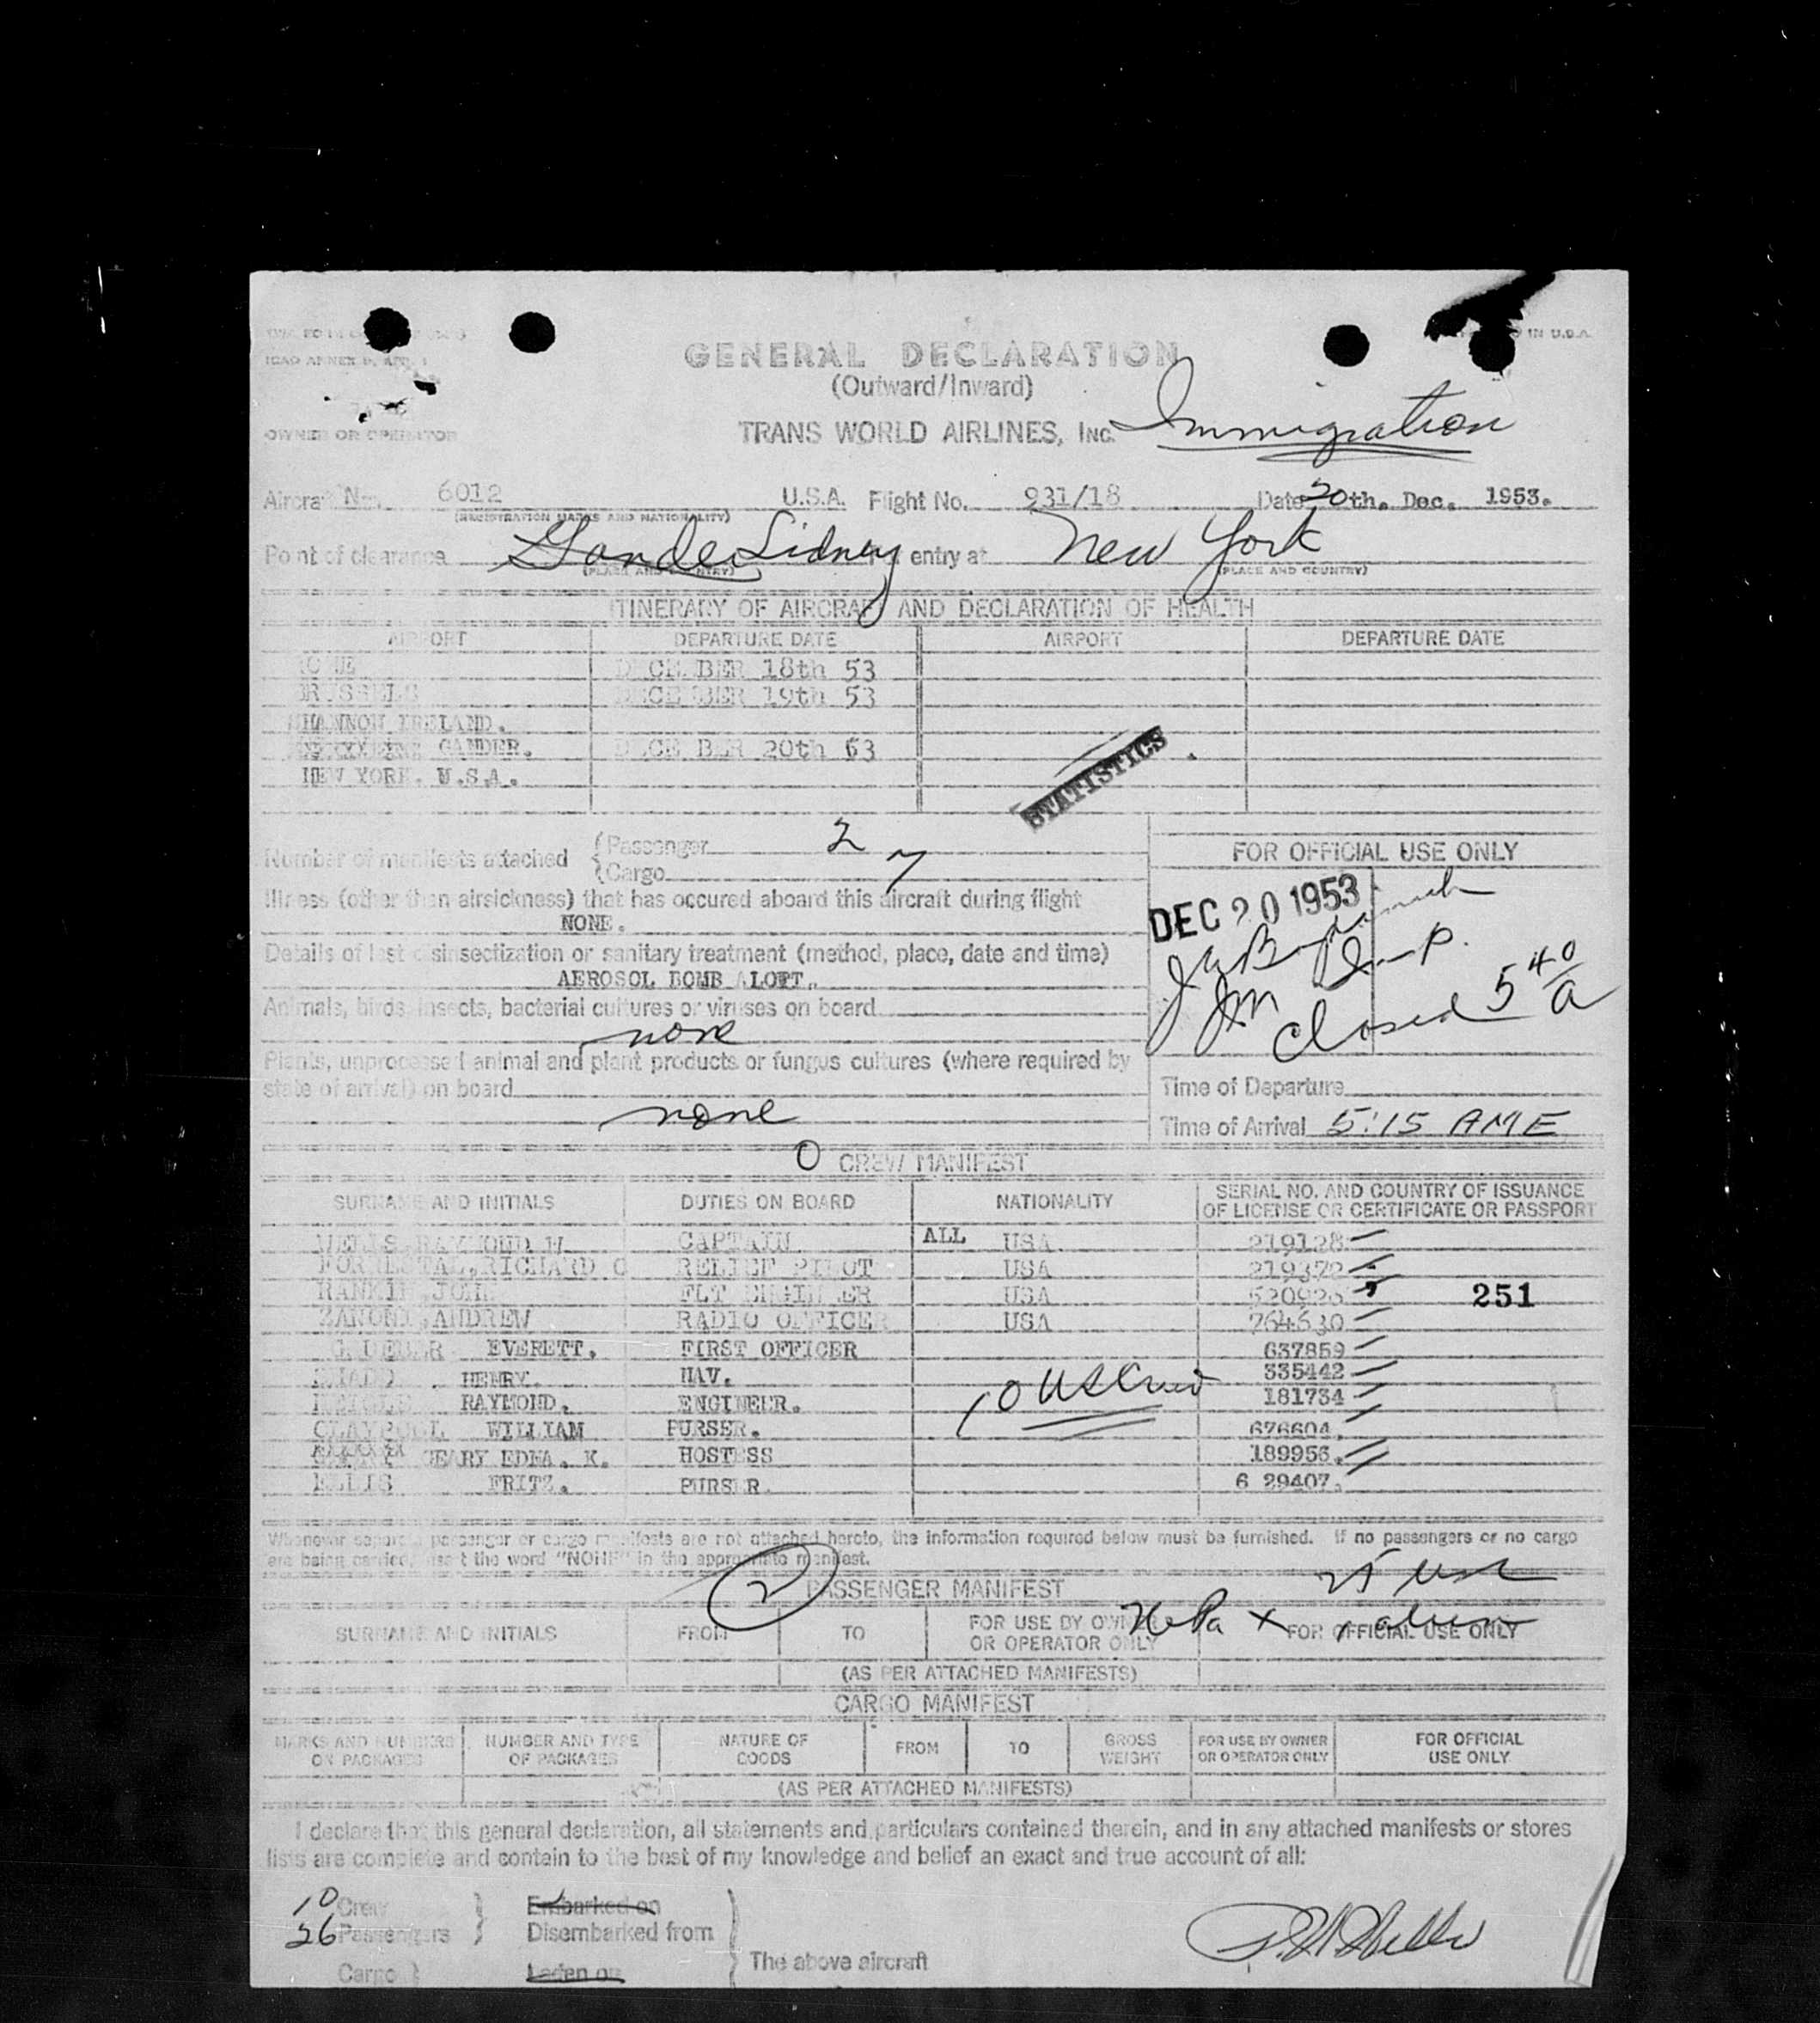 IN U.S.A.
GENERAL DECLARATION
(Outward/Inward)
OWNER OR OPERATOR TRANS WORLD AIRLINES, INC. Immigration
Aircraft No. 6012 U.S.A. Flight No. 931/18 Date 20th. Dec. 1953.
(REGISTRATION MARKS AND NATIONALITY)
Point of clearance Gander Sidney entry at New York
(PLACE AND COUNTRY) (PLACE AND COUNTRY)
ITINERARY OF AIRCRAFT AND DECLARATION OF HEALTH
AIRPORT DEPARTURE DATE AIRPORT DEPARTURE DATE
DECEMBER 18th 53
BRUSSELS DECEMBER 19th 53
SHANNON IRELAND.
GANDER. DECEMBER 20th 53
NEW YORK. U.S.A.
STATISTICS
Number of manifests attached {Passenger 2
{Cargo 7
FOR OFFICIAL USE ONLY
Illness (other than airsickness) that has occured aboard this aircraft during flight
NONE.
DEC 20 1953
Details of last disinsectization or sanitary treatment (method, place, date and time)
AEROSOL BOMB ALOFT.
Imp.
Closed 5 40/A
Animals, birds, insects, bacterial cultures or viruses on board
none
Plants, unprocessed animal and plant products or fungus cultures (where required by
state of arrival) on board
none
Time of Departure
Time of Arrival 5:15 AME
O CREW MANIFEST
SURNAME AND INITIALS DUTIES ON BOARD NATIONALITY SERIAL NO. AND COUNTRY OF ISSUANCE
OF LICENSE OR CERTIFICATE OR PASSPORT
RAYMOND W CAPTAIN ALL USA 219128
FORRESTAL, RICHARD O RELIEF PILOT USA 219372
RANKIN, JOHN FLT ENGINEER USA 251
ZANONI, ANDREW RADIO OFFICER USA 764630
EVERETT. FIRST OFFICER 637859
HENRY. NAV. 335442
RAYMOND. ENGINEER. 10 USC 181734
CLAYPOOL WILLIAM PURSER. 676604.
GEARY EDNA. K. HOSTESS 189956.
ELLIS FRITZ. PURSER. 6 29407.
Whenever separate passenger or cargo manifests are not attached hereto, the information required below must be furnished. If no passengers or no cargo
are being carried, insert the word "NONE" in the appropriate manifest.
2 PASSENGER MANIFEST 25 USC
SURNAME AND INITIALS FROM TO FOR USE BY OWNER
OR OPERATOR ONLY FOR OFFICIAL USE ONLY
1 alien
(AS PER ATTACHED MANIFESTS)
CARGO MANIFEST
MARKS AND NUMBERS
ON PACKAGES NUMBER AND TYPE
OF PACKAGES NATURE OF
GOODS FROM TO GROSS
WEIGHT FOR USE BY OWNER
OR OPERATOR ONLY FOR OFFICIAL
USE ONLY
(AS PER ATTACHED MANIFESTS)
I declare that this general declaration, all statements and particulars contained therein, and in any attached manifests or stores
lists are complete and contain to the best of my knowledge and belief an exact and true account of all:
10 Crew } Embarked on
26 Passengers } Disembarked from
Cargo } Laden on } The above aircraft